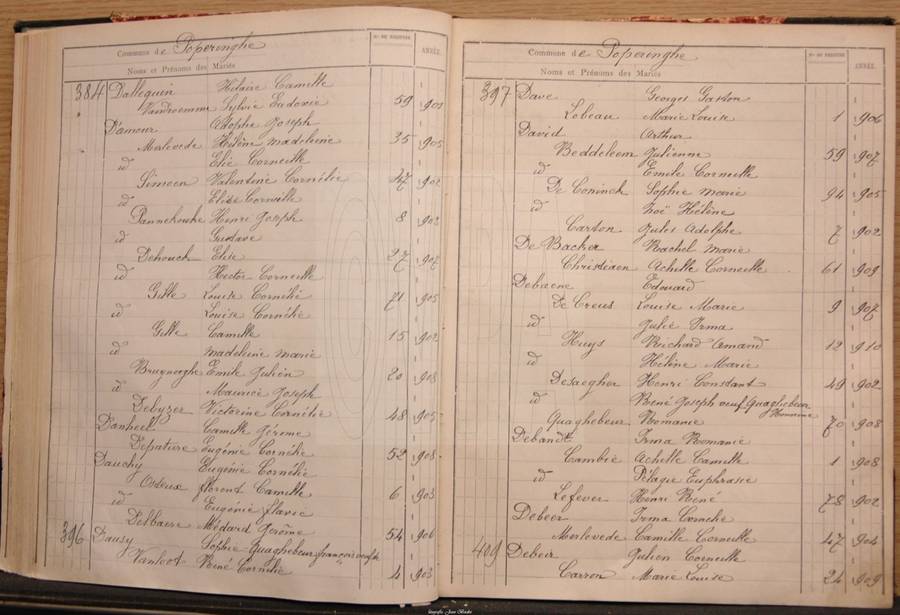 Commune de Poperinghe
Nos DE REGISTRE
ANNÉE.
Noms et Prénoms des Mariés
384 Dallequin Hilaire Camille
Vandroemme Sylvie Eudoxie 59 1903
D'amour Adolphe Joseph
Merlevede Hélène Madeleine 35 1905
id Elie Corneille
Simoen Valentine Cornélie 47 1902
id Elise Corneille
Pannekoucke Henri Joseph 8 1903
id Gustave
Dehouck Elise 27 1907
id Hector Corneille
Gille Louise Cornélie 71 1905
id Louise Cornélie
Gille Camille 15 1902
id Madeleine Marie
Bruyneeghe Emile Julien 20 1908
id Maurice Joseph
Debyzer Victorine Cornélie 48 1905
Camille Jérome
Départure Eugénie Cornélie 52 1908
Dauchy Eugénie Cornélie
Osteux Florent Camille 6 1903
id Eugénie Flavie
Delbaere Médard Jérôme 54 1906
396 Dausy Sophie Quaghebeur françois
René Cornélie 4 1903
Commune de Poperinghe
Nos DE REGISTRE
ANNÉE.
Noms et Prénoms des Mariés
397 Dave Georges Gaston
Lobeau Marie Louise 1 1906
David Arthur
Beddeleem Julienne 59 1907
id Emile Corneille
De Coninck Sophie Marie 94 1905
id Zoé Hélène
Carton Jules Adolphe 7 1902
De Backer Rachel Marie
Christiaen Achille Corneille 61 1909
Debaene Edouard
De Creus Louise Marie 9 1907
id Julie Irma
Huys Richard Amand 12 1910
id Hélène Marie
Desaegher Henri Constant 49 1902
id René Joseph veuf Quaghebeur
Quaghebeur Romanie 70 1908
Debandt Irma Romanie
Cambié Achille Camille 1 1908
id Pélagie Euphrasie
Lefever Henri René 78 1902
Debeer Irma
Merlevede Camille Corneille 47 1904
409 Debeir Julien Corneille
Carron Marie Louise 24 1909